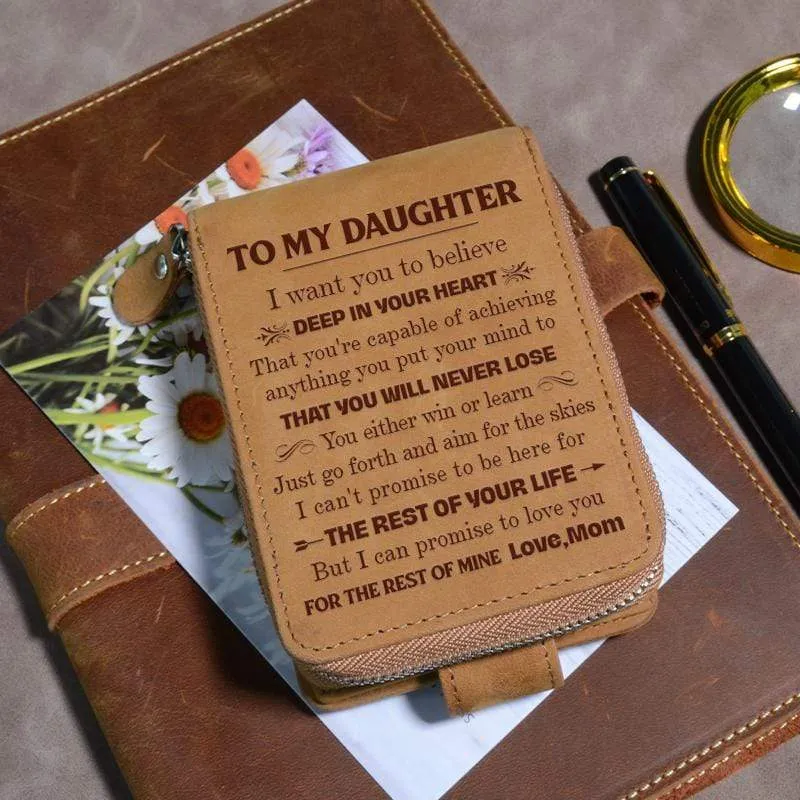 TO MY DAUGHTER
I want you to believe
DEEP IN YOUR HEART
That you're capable of achieving
anything you put your mind to
THAT YOU WILL NEVER LOSE
You either win or learn
Just go forth and aim for the skies
I can't promise to be here for
THE REST OF YOUR LIFE
But I can promise to love you
FOR THE REST OF MINE Love,Mom